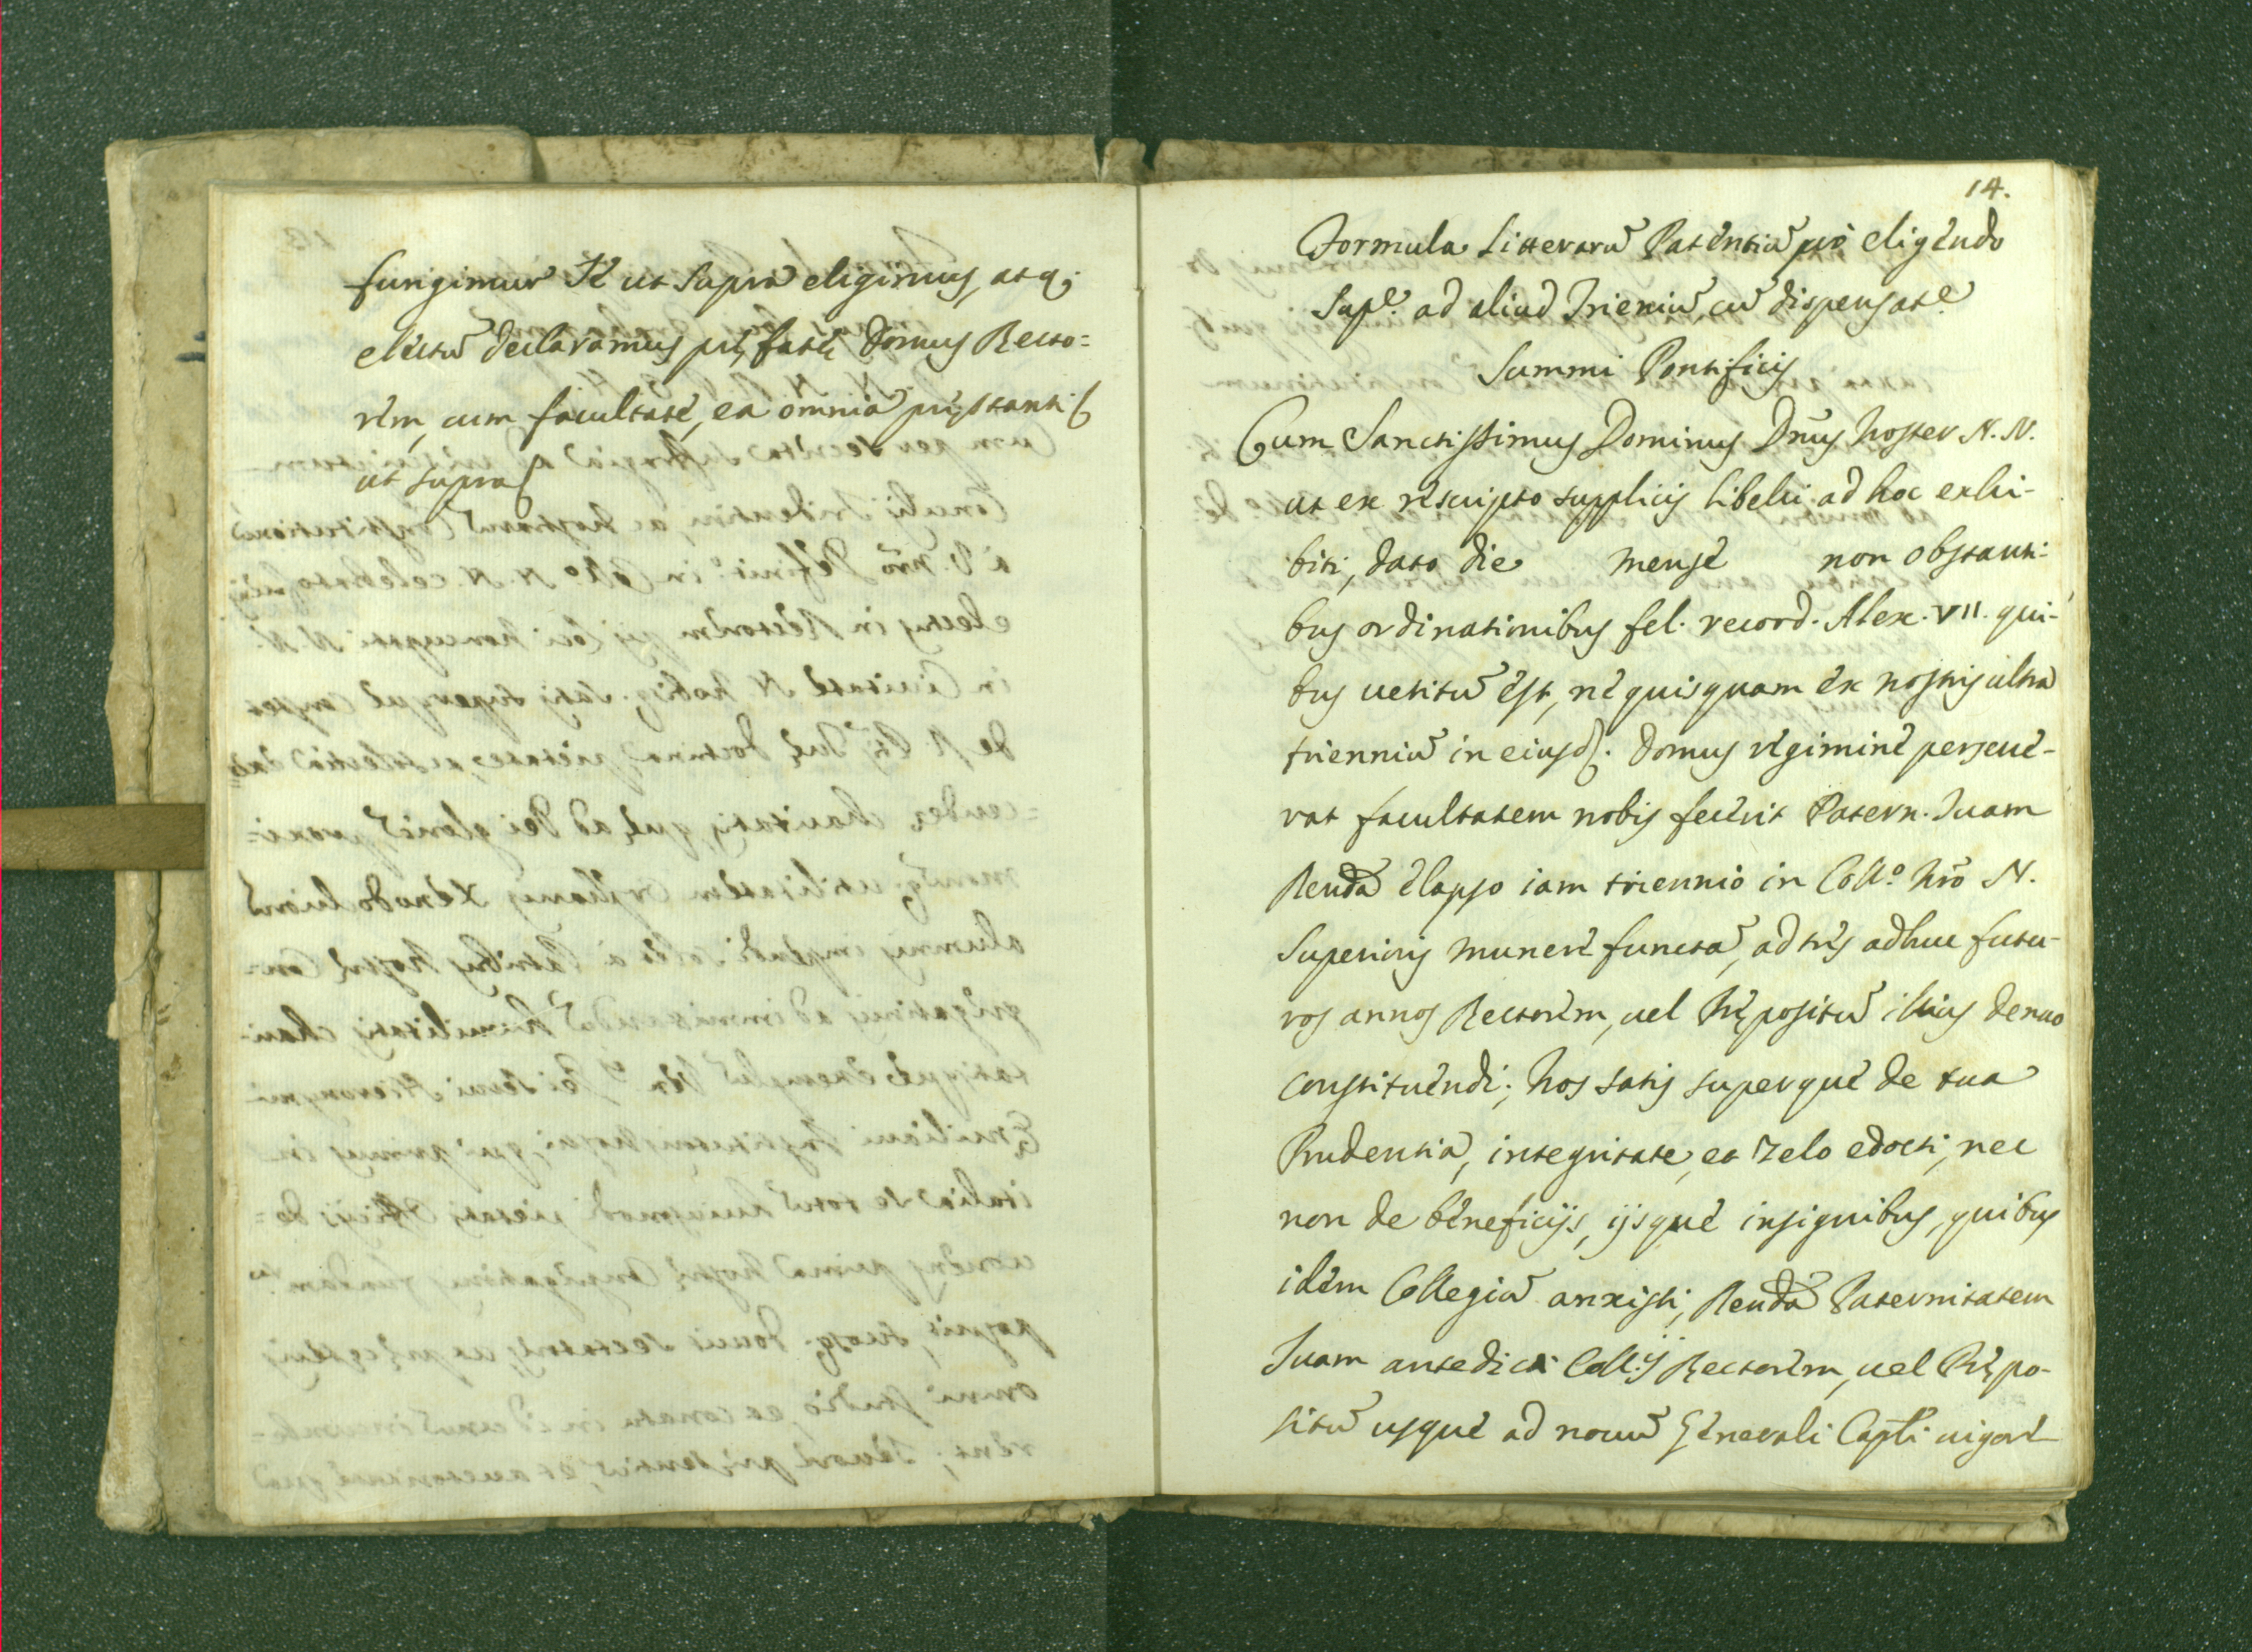 fungimur Te ut supra eligimus, atq;
electũ declaramus pręfatę Domus Recto=
rem, cum facultate, ea omnia pręstanti
ut supra
14.
Formula Litterarũ Patentiũ pro eligendo
Supᵉ. ad aliud Trieniũ, cũ dispensatᵉ
Summi Pontificis
Cum Sanctissimus Dominus Dñus noster N. N.
ut ex rescripto supplicis libelli ad hoc exhi-
biti, dato die mense non obstanti-
bus ordinationibus fel. record. Alex. VII. qui-
bus uetitũ est, ne quisquam ex nostris ultra
trienniũ in eiusd. Domus regimine perseue-
rat facultatem nobis fecerit Patern. Tuam
Reuda elapso iam triennio in Collº. nrõ N.
Superioris munere functã, ad tres adhuc futu-
ros annos Rectorem, uel Prępositũ illius denuo
constituendi; nos satis superque de tua
Prudentia, integritate, et zelo edocti, nec
non de beneficijs, ijsque insignibus, quibus
idem Collegiũ anxisti, Reuda Paternitatem
Tuam antedicti Coll.ij Rectorem, uel Prępo-
sitũ usque ad nouũ Generali Capli uigore